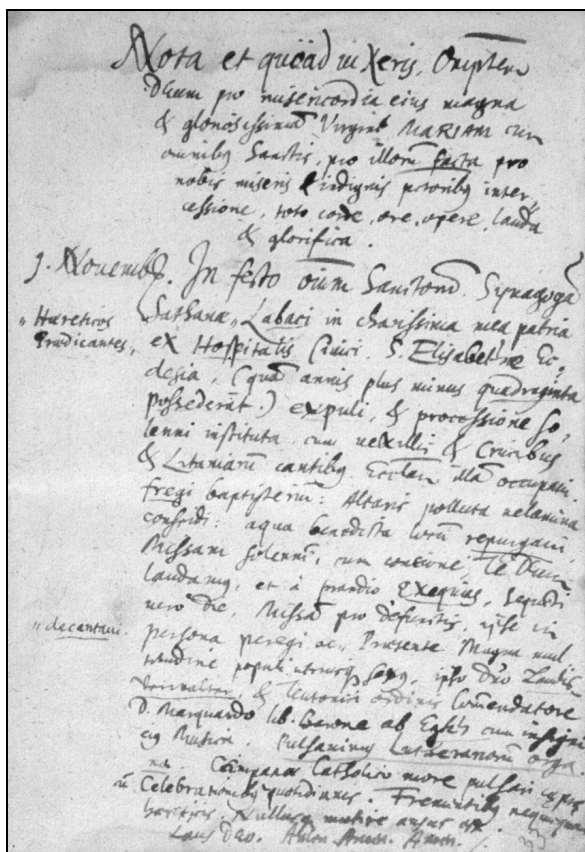 Nota et quòad vixeris, Omptem
Deum pro misericordia eius magna
& gloriosissimā Virginē MARIAM cum
omnibq Sanctis, pro illorū facta pro
nobis miseris & indignis ptoribq inter,
cessione, toto, corde, ore, opere, lauda
& glorifica.
1. Novemb. In festo oīum Sanctorū. Synagogā
„ Hæreticos Sathanæ „ Labaci in charissima mea patria
Prædicantes, ex Hospitalis Civici. S. Elisabethæ Ec,
clesia, (quā annis plus minus quadraginta
possederāt.) expuli, & processione so,
lenni instituta, cum vexillis & Crucibus
& Litaniarū cantibq. Eccliam illā occupavi,
fregi baptisterium: Altaris polluta velamina
conscidi: aqua benedicta locū repurgavi,
Missam solennē, cum concione, Te Deum
laudamq, et à prandio Exequias, sequēti
vero die, Missā pro defunctis, ipse in
„ decantavi. persona peregi ac „ Præsente Magna mul
titudine populi utriusq sexq, ipso Dno
& Teutonici ordinis Comendatore
D. Marquardo lib. Barone ab Egkh cum insigni
eiq Musica. Pulsavimus Lutheranorū orga
na. Campanas Catholico more pulsari
Celebrationibq quotidianis. Frementibq nequicquam
hæreticis. Nullusq mutire ausus est.
Laus Deo. Amen. Amen.